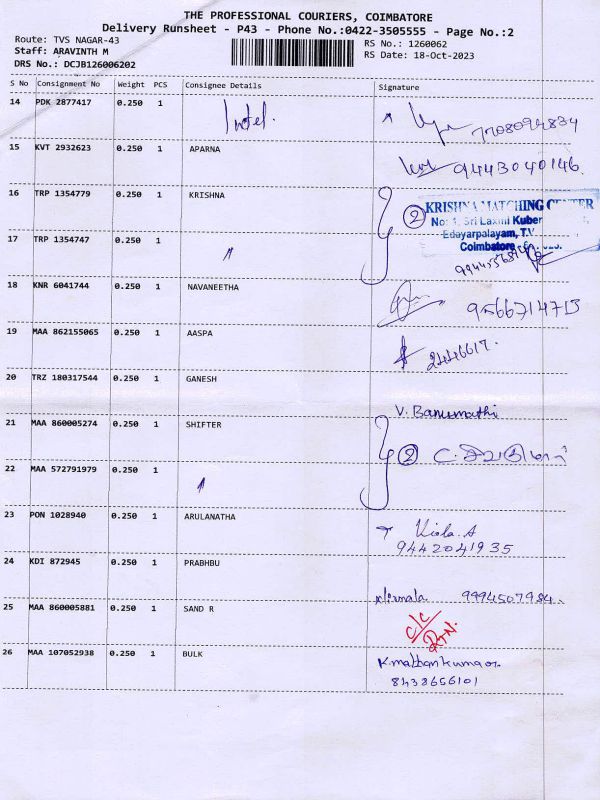 THE PROFESSIONAL COURIERS, COIMBATORE
Delivery Runsheet - P43 - Phone No.:0422-3505555 - Page No.:2
Route: TVS NAGAR-43
Staff: ARAVINTH M
DRS No.: DCJB126006202
RS No.: 1260062
RS Date: 18-Oct-2023
S No Consignment No Weight PCS Consignee Details Signature
14 PDK 2877417 0.250 1 Intel. 7708094834
15 KVT 2932623 0.250 1 APARNA 9443040146.
16 TRP 1354779 0.250 1 KRISHNA
2 KRISHNA MATCHING CENTER
No: 1, Sri Laxmi Kuber
Edayarpalayam, T.V
Coimbatore
17 TRP 1354747 0.250 1
18 KNR 6041744 0.250 1 NAVANEETHA 9566714713
19 MAA 862155065 0.250 1 AASPA 2446617.
20 TRZ 180317544 0.250 1 GANESH V. Banumathi
21 MAA 860005274 0.250 1 SHIFTER 2
22 MAA 572791979 0.250 1
23 PON 1028940 0.250 1 ARULANATHA Viola.A
9442041935
24 KDI 872945 0.250 1 PRABHBU Nirmala 9994507984.
25 MAA 860005881 0.250 1 SAND R C/C
RTN.
26 MAA 107052938 0.250 1 BULK K.mathankumar.
8438656101